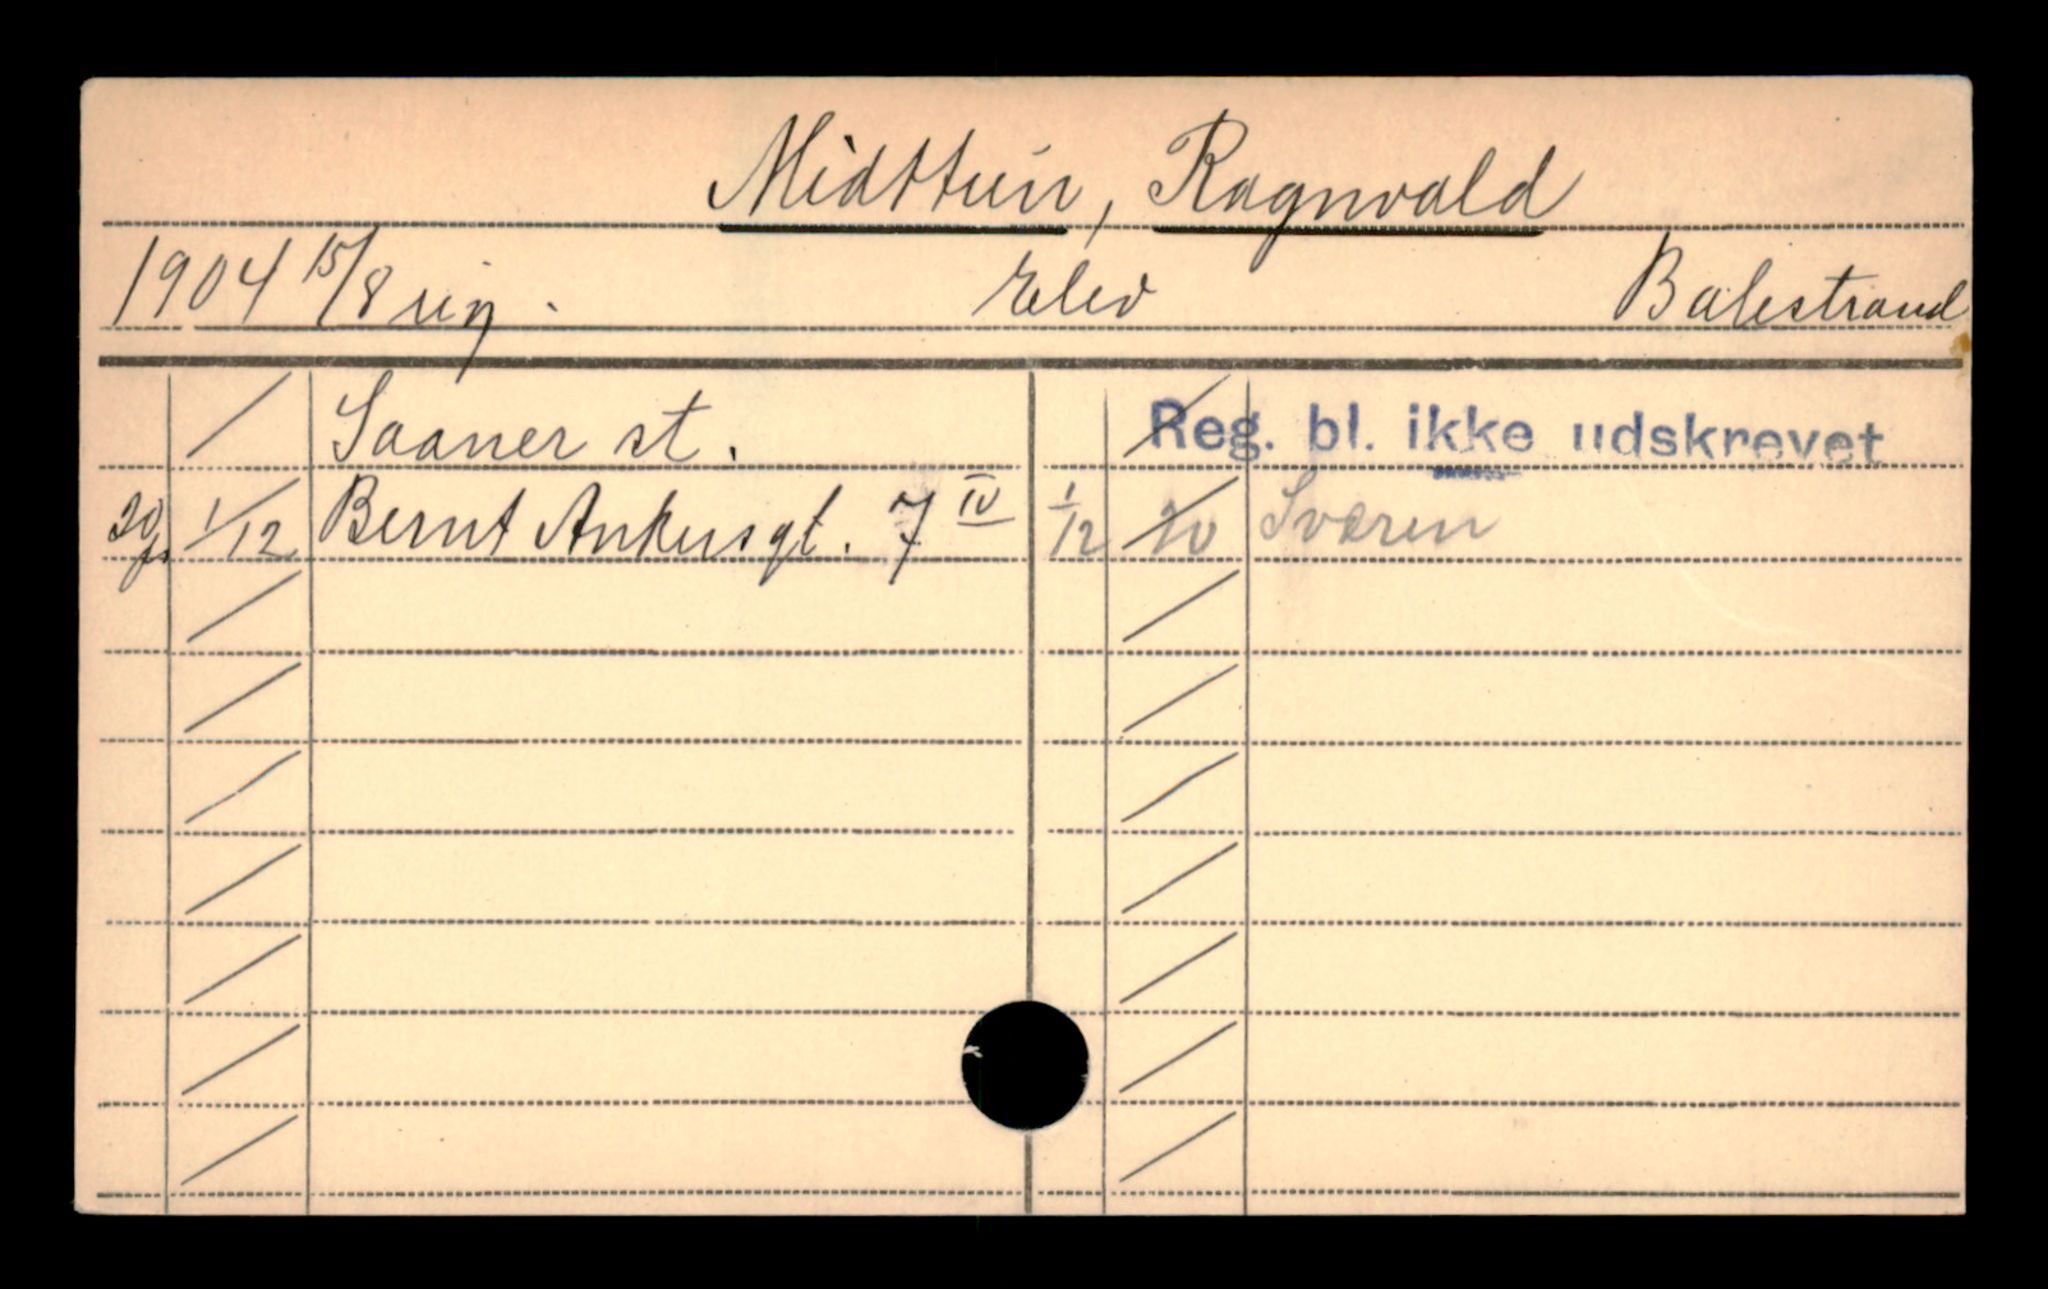 Midttun, Ragnvald
1904 15/8 ug. Elev Balestrand
Saaner st. Reg. bl. ikke udskrevet
20 1/12 Bernt Ankersgt. 7 IV 1/12 20 Sværen